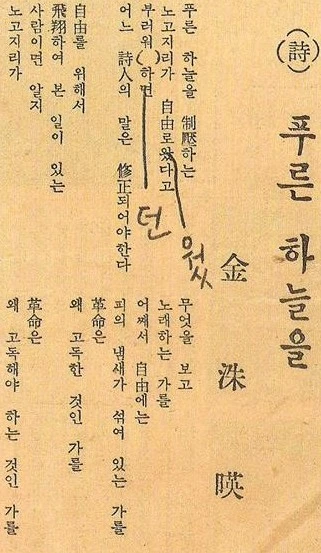 (詩)
푸른 하늘을
金洙暎
푸른 하늘을 制壓하는
노고지리가 自由로왔다고
부러워( )하면
어느 詩人의 말은 修正되어야한다
던
웠
自由를 위해서
飛翔하여 본 일이 있는
사람이면 알지
노고지리가
무엇을 보고
노래하는 가를
어째서 自由에는
피의 냄새가 섞여 있는 가를
革命은
왜 고독한 것인 가를
革命은
왜 고독해야 하는 것인 가를